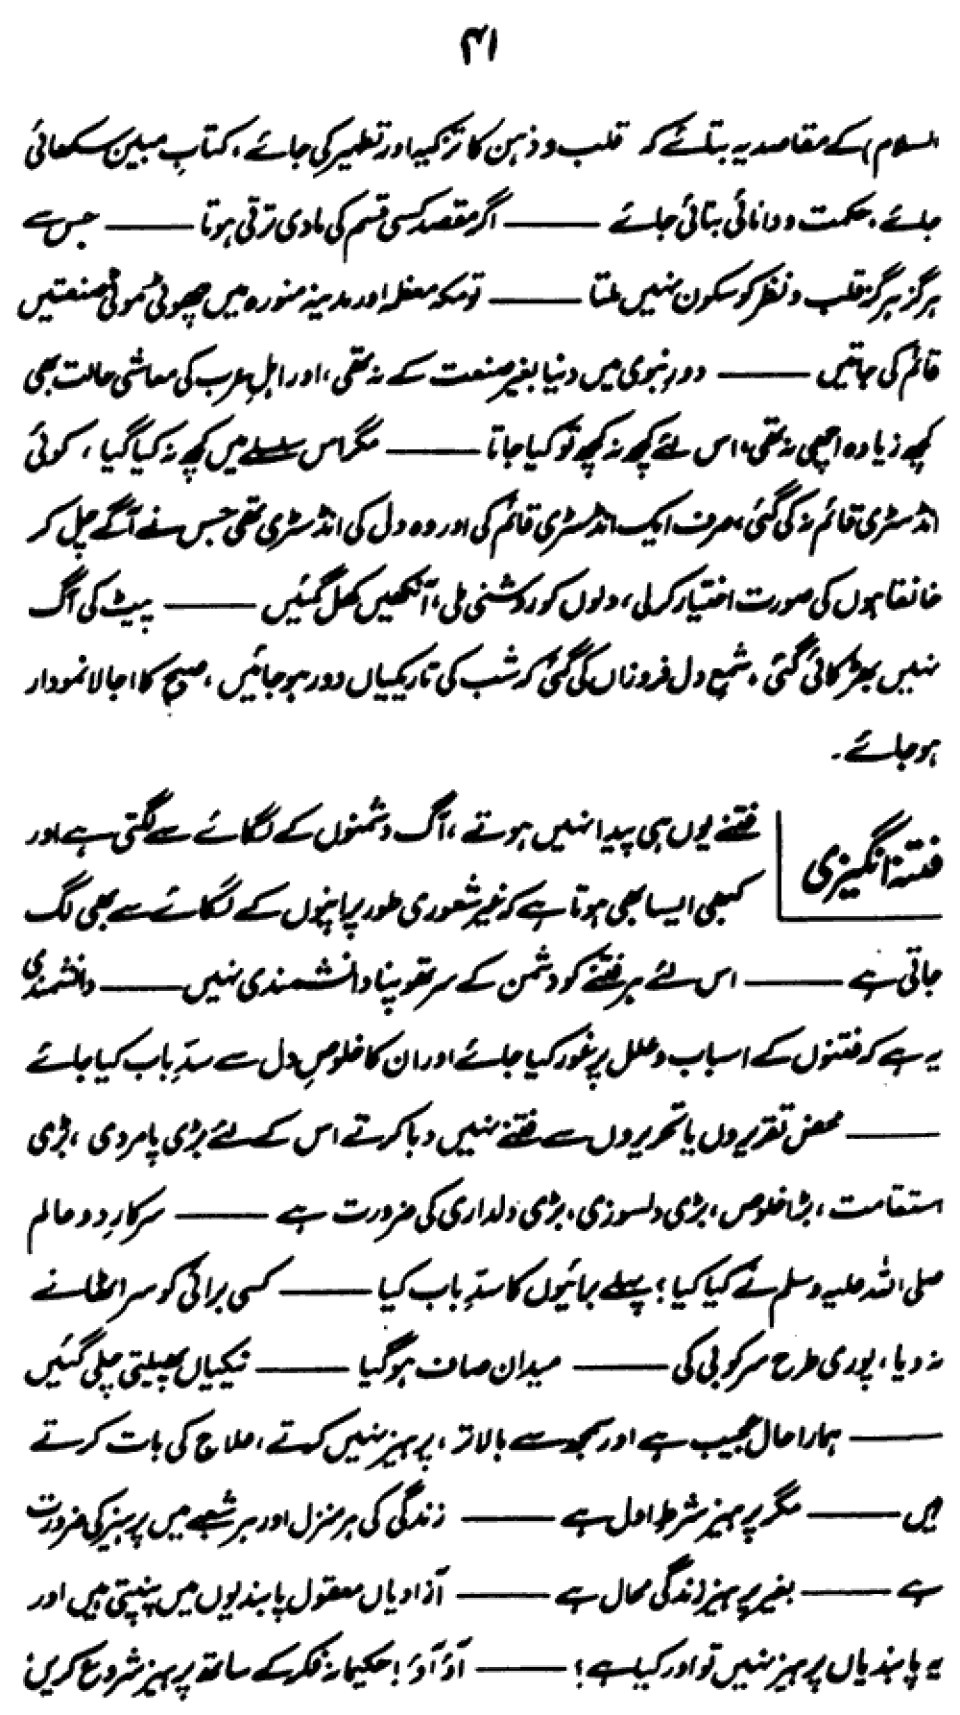 ۴۱
السلام) کے مقاصد یہ بتائے کہ قلب و ذہن کا تزکیہ اور تطہیر کی جائے، کتابِ مبین سکھائی
جائے، حکمت و دانائی بتائی جائے ——— اگر مقصد کسی قسم کی مادی ترقی ہوتا ——— جس سے
ہرگز ہرگز قلب و نظر کو سکون نہیں ملتا ——— تو مکہ معظمہ اور مدینہ منورہ میں چھوٹی موٹی صنعتیں
قائم کی جاتیں ——— دورِ نبوی میں دنیا بغیر صنعت کے نہ تھی، اور اہلِ عرب کی معاشی حالت بھی
کچھ زیادہ اچھی نہ تھی، اس لئے کچھ نہ کچھ تو کیا جاتا ——— مگر اس سلسلے میں کچھ نہ کیا گیا، کوئی
انڈسٹری قائم نہ کی گئی، صرف ایک انڈسٹری قائم کی اور وہ دل کی انڈسٹری تھی جس نے آگے چل کر
خانقاہوں کی صورت اختیار کر لی، دلوں کو روشنی ملی، آنکھیں کھل گئیں ——— پیٹ کی آگ
نہیں بھڑکائی گئی، شمعِ دل فروزاں کی گئی کہ شب کی تاریکیاں دور ہو جائیں، صبح کا اجالا نمودار
ہو جائے۔
فتنہ انگیزی
فتنے یوں ہی پیدا نہیں ہوتے، آگ دشمنوں کے لگائے سے لگتی ہے اور
کبھی ایسا بھی ہوتا ہے کہ غیر شعوری طور پر اپنوں کے لگائے سے بھی لگ
جاتی ہے ——— اس لئے ہر فتنے کو دشمن کے سر تھوپنا دانشمندی نہیں ——— دانشمندی
یہ ہے کہ فتنوں کے اسباب و علل پر غور کیا جائے اور ان کا خلوصِ دل سے سدِّ باب کیا جائے
——— محض تقریروں یا تحریروں سے فتنے نہیں دبا کرتے اس کے لئے بڑی پامردی، بڑی
استقامت، بڑا خلوص، بڑی دلسوزی، بڑی دلداری کی ضرورت ہے ——— سرکارِ دو عالم
صلی اللہ علیہ وسلم نے کیا کیا؟ پہلے برائیوں کا سدِّ باب کیا ——— کسی برائی کو سر اٹھانے
نہ دیا، پوری طرح سرکوبی کی ——— میدان صاف ہو گیا ——— نیکیاں پھیلتی چلی گئیں
——— ہمارا حال عجیب ہے اور سمجھ سے بالاتر، پرہیز نہیں کرتے، علاج کی بات کرتے
ہیں ——— مگر پرہیز شرطِ اول ہے ——— زندگی کی ہر منزل اور ہر شعبے میں پرہیز کی ضرورت
ہے ——— بغیر پرہیز زندگی محال ہے ——— آزادیاں معقول پابندیوں میں پنپتی ہیں اور
یہ پابندیاں پرہیز نہیں تو اور کیا ہے؟ ——— آؤ آؤ! حکیمانہ فکر کے ساتھ پرہیز شروع کریں